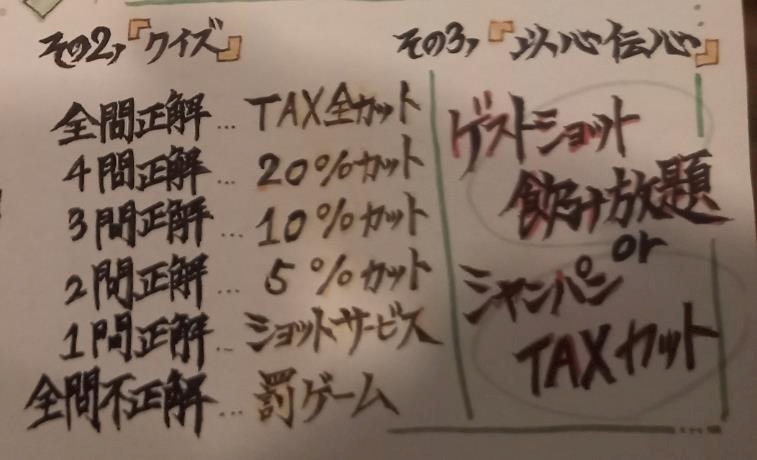 その2,『クイズ』
全問正解…TAX全カット
4問正解…20%カット
3問正解…10%カット
2問正解…5%カット
1問正解…ショットサービス
全問不正解…罰ゲーム
その3,『以心伝心』
ゲストショット
飲み放題
or
シャンパン
TAXカット